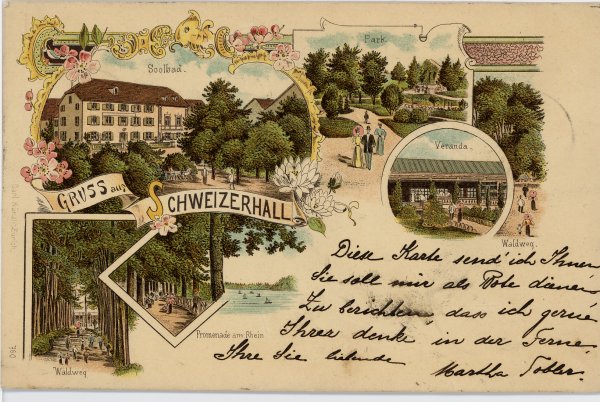 Soolbad.
Park.
Veranda.
GRUSS aus SCHWEIZERHALL
Waldweg.
Promenade am Rhein
Waldweg
Diese Karte send' ich Ihnen
Sie soll mir als Bote dienen
Zu berichten, dass ich gerne
Ihrer denke in der Ferne
Ihre Sie liebende
Martha Tobler.